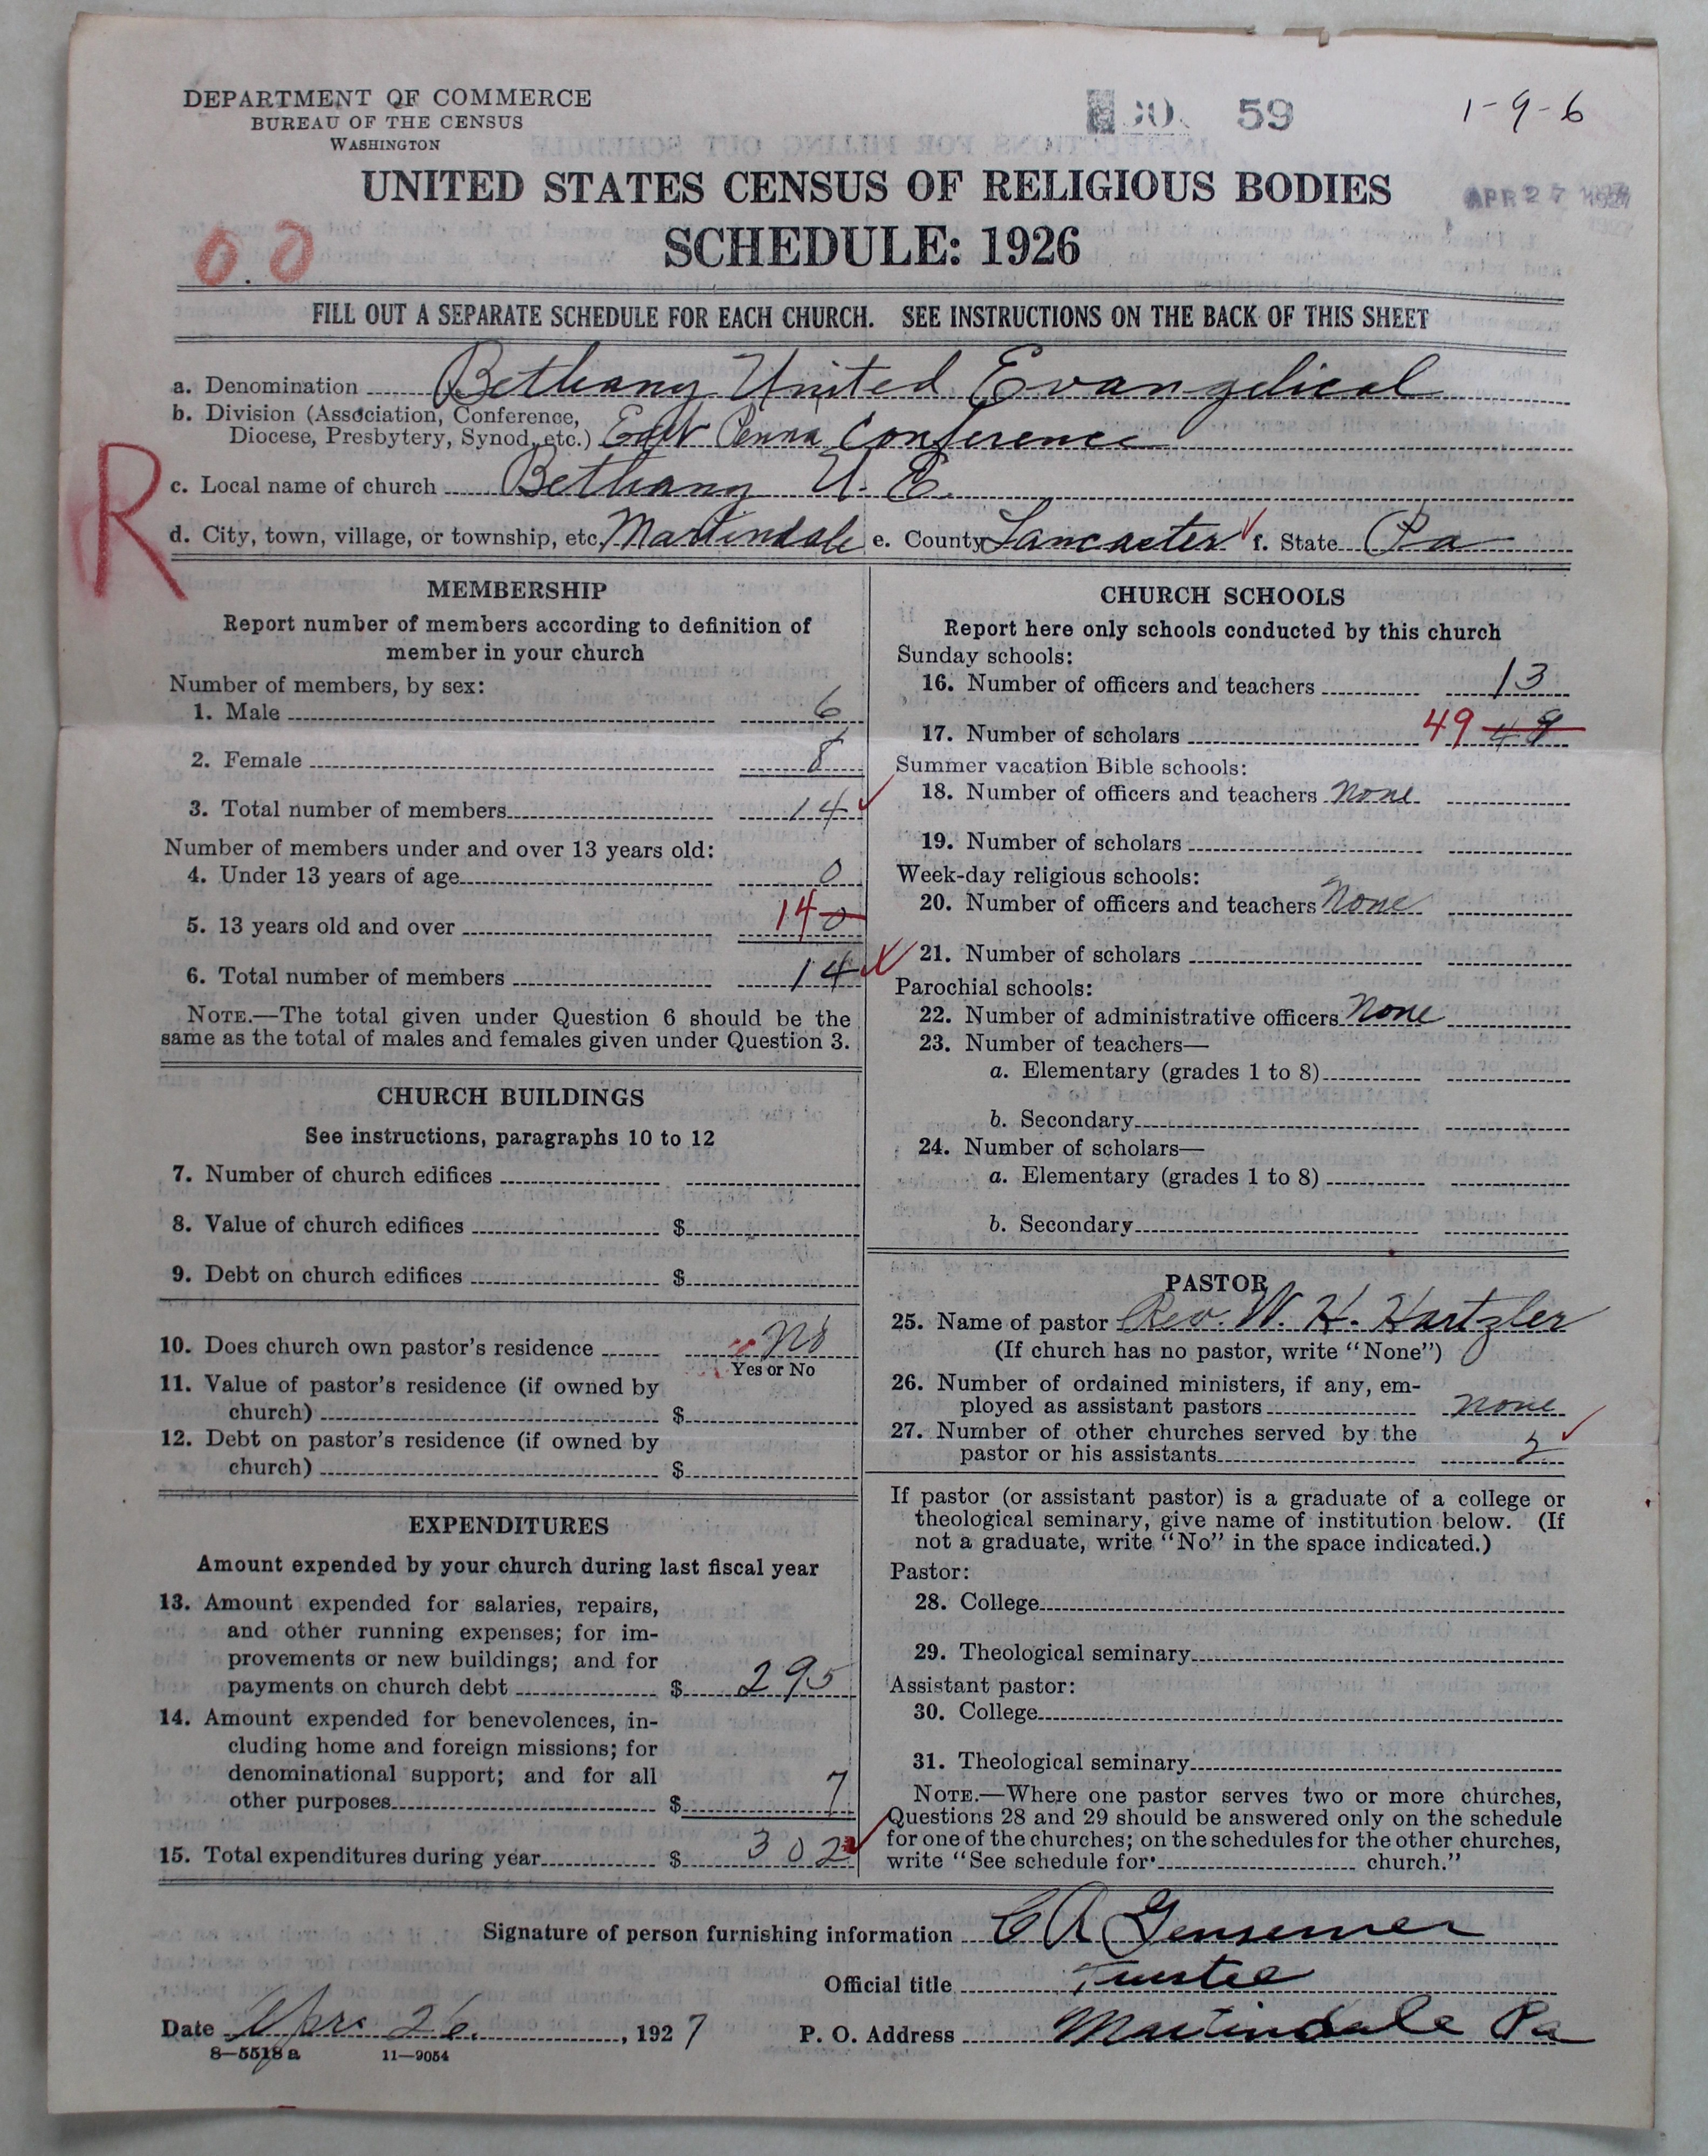 DEPARTMENT OF COMMERCE
BUREAU OF THE CENSUS
WASHINGTON
59
1-9-6
UNITED STATES CENSUS OF RELIGIOUS BODIES
APR 27 1927
SCHEDULE: 1926
FILL OUT A SEPARATE SCHEDULE FOR EACH CHURCH. SEE INSTRUCTIONS ON THE BACK OF THIS SHEET
a. Denomination Bethany United Evangelical
b. Division (Association, Conference,
Diocese, Presbytery, Synod, etc.) East Penna Conference
R
c. Local name of church Bethany U. E.
d. City, town, village, or township, etc. Martindale e. County Lancaster f. State Pa
MEMBERSHIP
Report number of members according to definition of
member in your church
Number of members, by sex:
1. Male 6
2. Female 8
3. Total number of members 14
Number of members under and over 13 years old:
4. Under 13 years of age 0
5. 13 years old and over 14 0
6. Total number of members 14
NOTE.—The total given under Question 6 should be the
same as the total of males and females given under Question 3.
CHURCH BUILDINGS
See instructions, paragraphs 10 to 12
7. Number of church edifices
8. Value of church edifices $
9. Debt on church edifices $
10. Does church own pastor's residence No
Yes or No
11. Value of pastor's residence (if owned by
church) $
12. Debt on pastor's residence (if owned by
church) $
EXPENDITURES
Amount expended by your church during last fiscal year
13. Amount expended for salaries, repairs,
and other running expenses; for im-
provements or new buildings; and for
payments on church debt $ 295
14. Amount expended for benevolences, in-
cluding home and foreign missions; for
denominational support; and for all
other purposes $ 7
15. Total expenditures during year $ 302
CHURCH SCHOOLS
Report here only schools conducted by this church
Sunday schools:
16. Number of officers and teachers 13
17. Number of scholars 49 49
Summer vacation Bible schools:
18. Number of officers and teachers None
19. Number of scholars
Week-day religious schools:
20. Number of officers and teachers None
21. Number of scholars
Parochial schools:
22. Number of administrative officers None
23. Number of teachers—
a. Elementary (grades 1 to 8)
b. Secondary
24. Number of scholars—
a. Elementary (grades 1 to 8)
b. Secondary
PASTOR
25. Name of pastor Rev. W. H. Hartzler
(If church has no pastor, write "None")
26. Number of ordained ministers, if any, em-
ployed as assistant pastors None
27. Number of other churches served by the
pastor or his assistants 2
If pastor (or assistant pastor) is a graduate of a college or
theological seminary, give name of institution below. (If
not a graduate, write "No" in the space indicated.)
Pastor:
28. College
29. Theological seminary
Assistant pastor:
30. College
31. Theological seminary
NOTE.—Where one pastor serves two or more churches,
Questions 28 and 29 should be answered only on the schedule
for one of the churches; on the schedules for the other churches,
write "See schedule for church."
Signature of person furnishing information C A Gensemer
Official title Trustee
Date Apr. 26, 1927 P. O. Address Martindale Pa
8—5518 a 11—9054